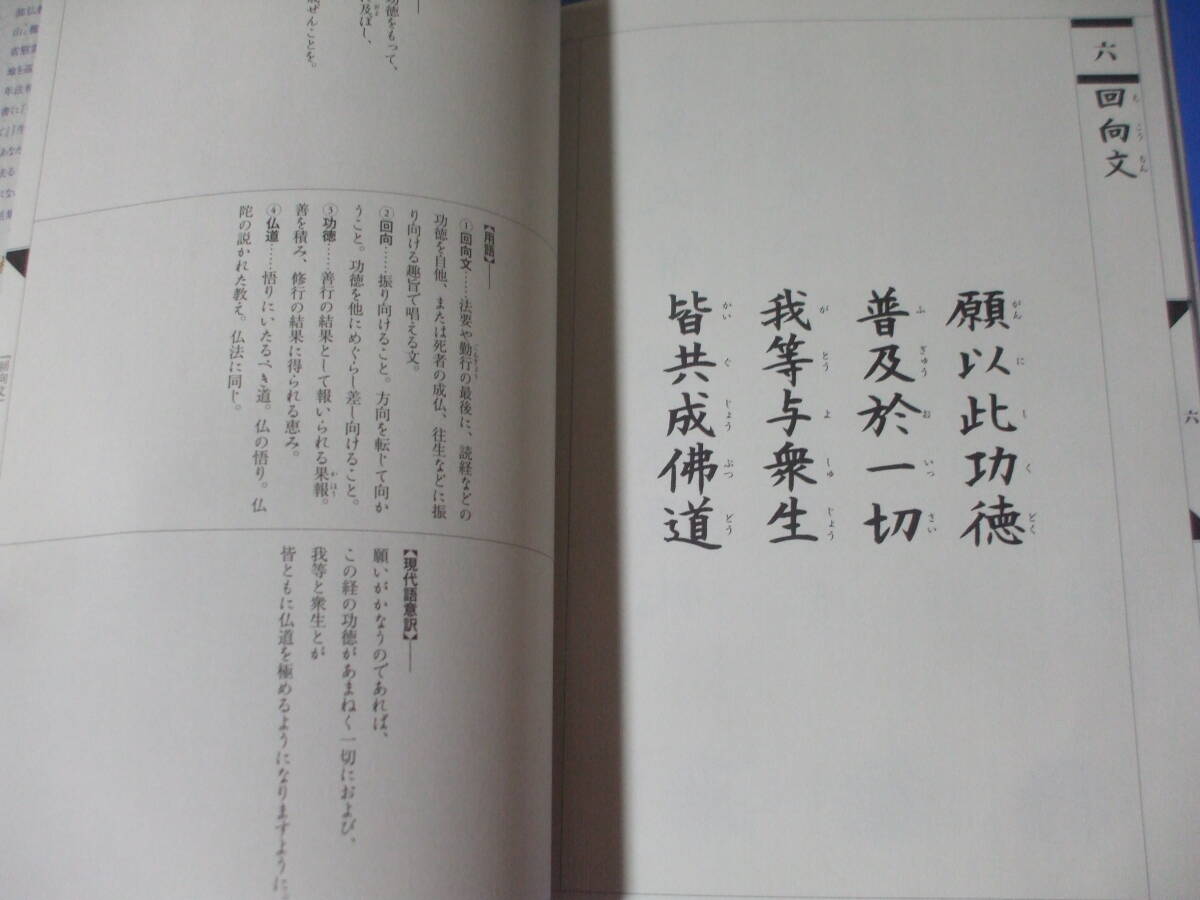 六
回向文
えこうもん
願以此功徳
がんにしくどく
普及於一切
ふぎゅうおいっさい
我等与衆生
がとうよしゅじょう
皆共成佛道
かいぐじょうぶつどう
六
功徳をもって、
及ぼし、
ぜんことを。
【用語】
①回向文……法要や勤行の最後に、読経などの
功徳を自他、または死者の成仏、往生などに振
り向ける趣旨で唱える文。
②回向……振り向けること。方向を転じて向か
うこと。功徳を他にめぐらし差し向けること。
③功徳……善行の結果として報いられる果報。
善を積み、修行の結果に得られる恵み。
④仏道……悟りにいたるべき道。仏の悟り。仏
陀の説かれた教え。仏法に同じ。
【現代語意訳】
願いがかなうのであれば、
この経の功徳があまねく一切におよび、
我等と衆生とが
皆ともに仏道を極めるようになりますように。